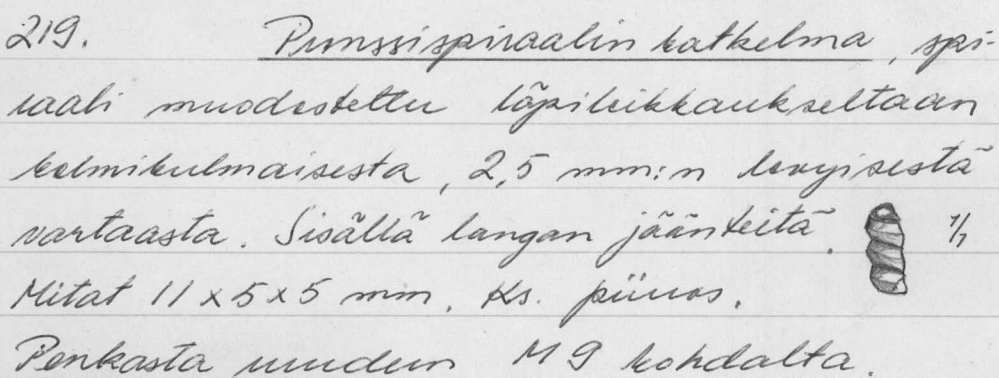 219. Pronssispiraalin katkelma, spi-
raali muodostettu läpileikkaukseltaan
kolmikulmaisesta, 2,5 mm:n levyisestä
vartaasta. Sisällä langan jäänteitä. 1/1
Mitat 11 x 5 x 5 mm. Ks. piirros.
Penkasta ruudun M 9 kohdalta.